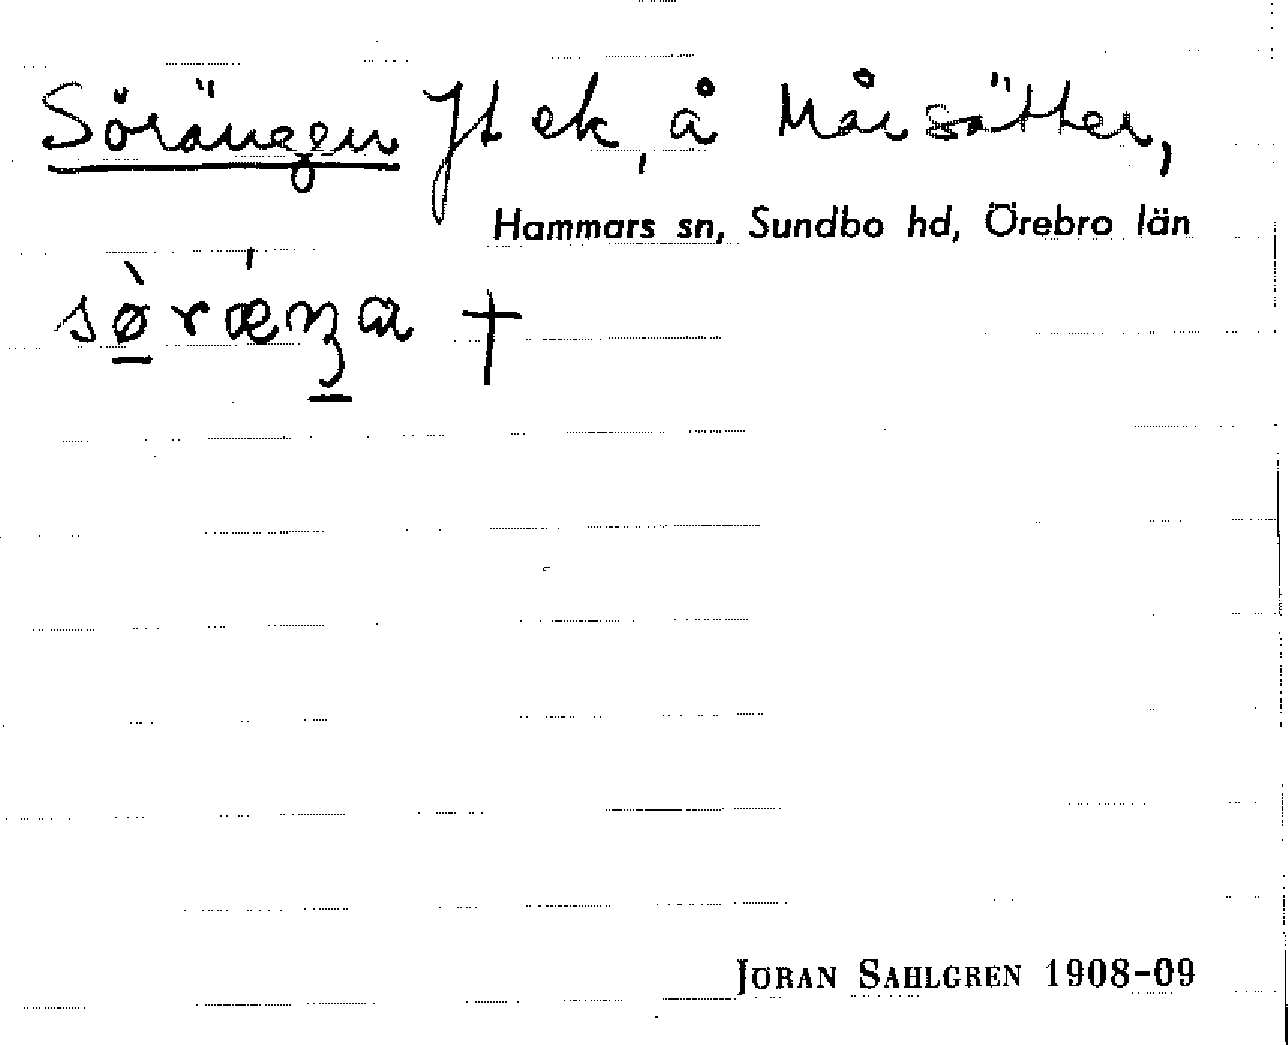 Sörängen Jt ek, å Mårsätter,
Hammars sn, Sundbo hd, Örebro län
sø̀rǽŋa †
JÖRAN SAHLGREN 1908-09